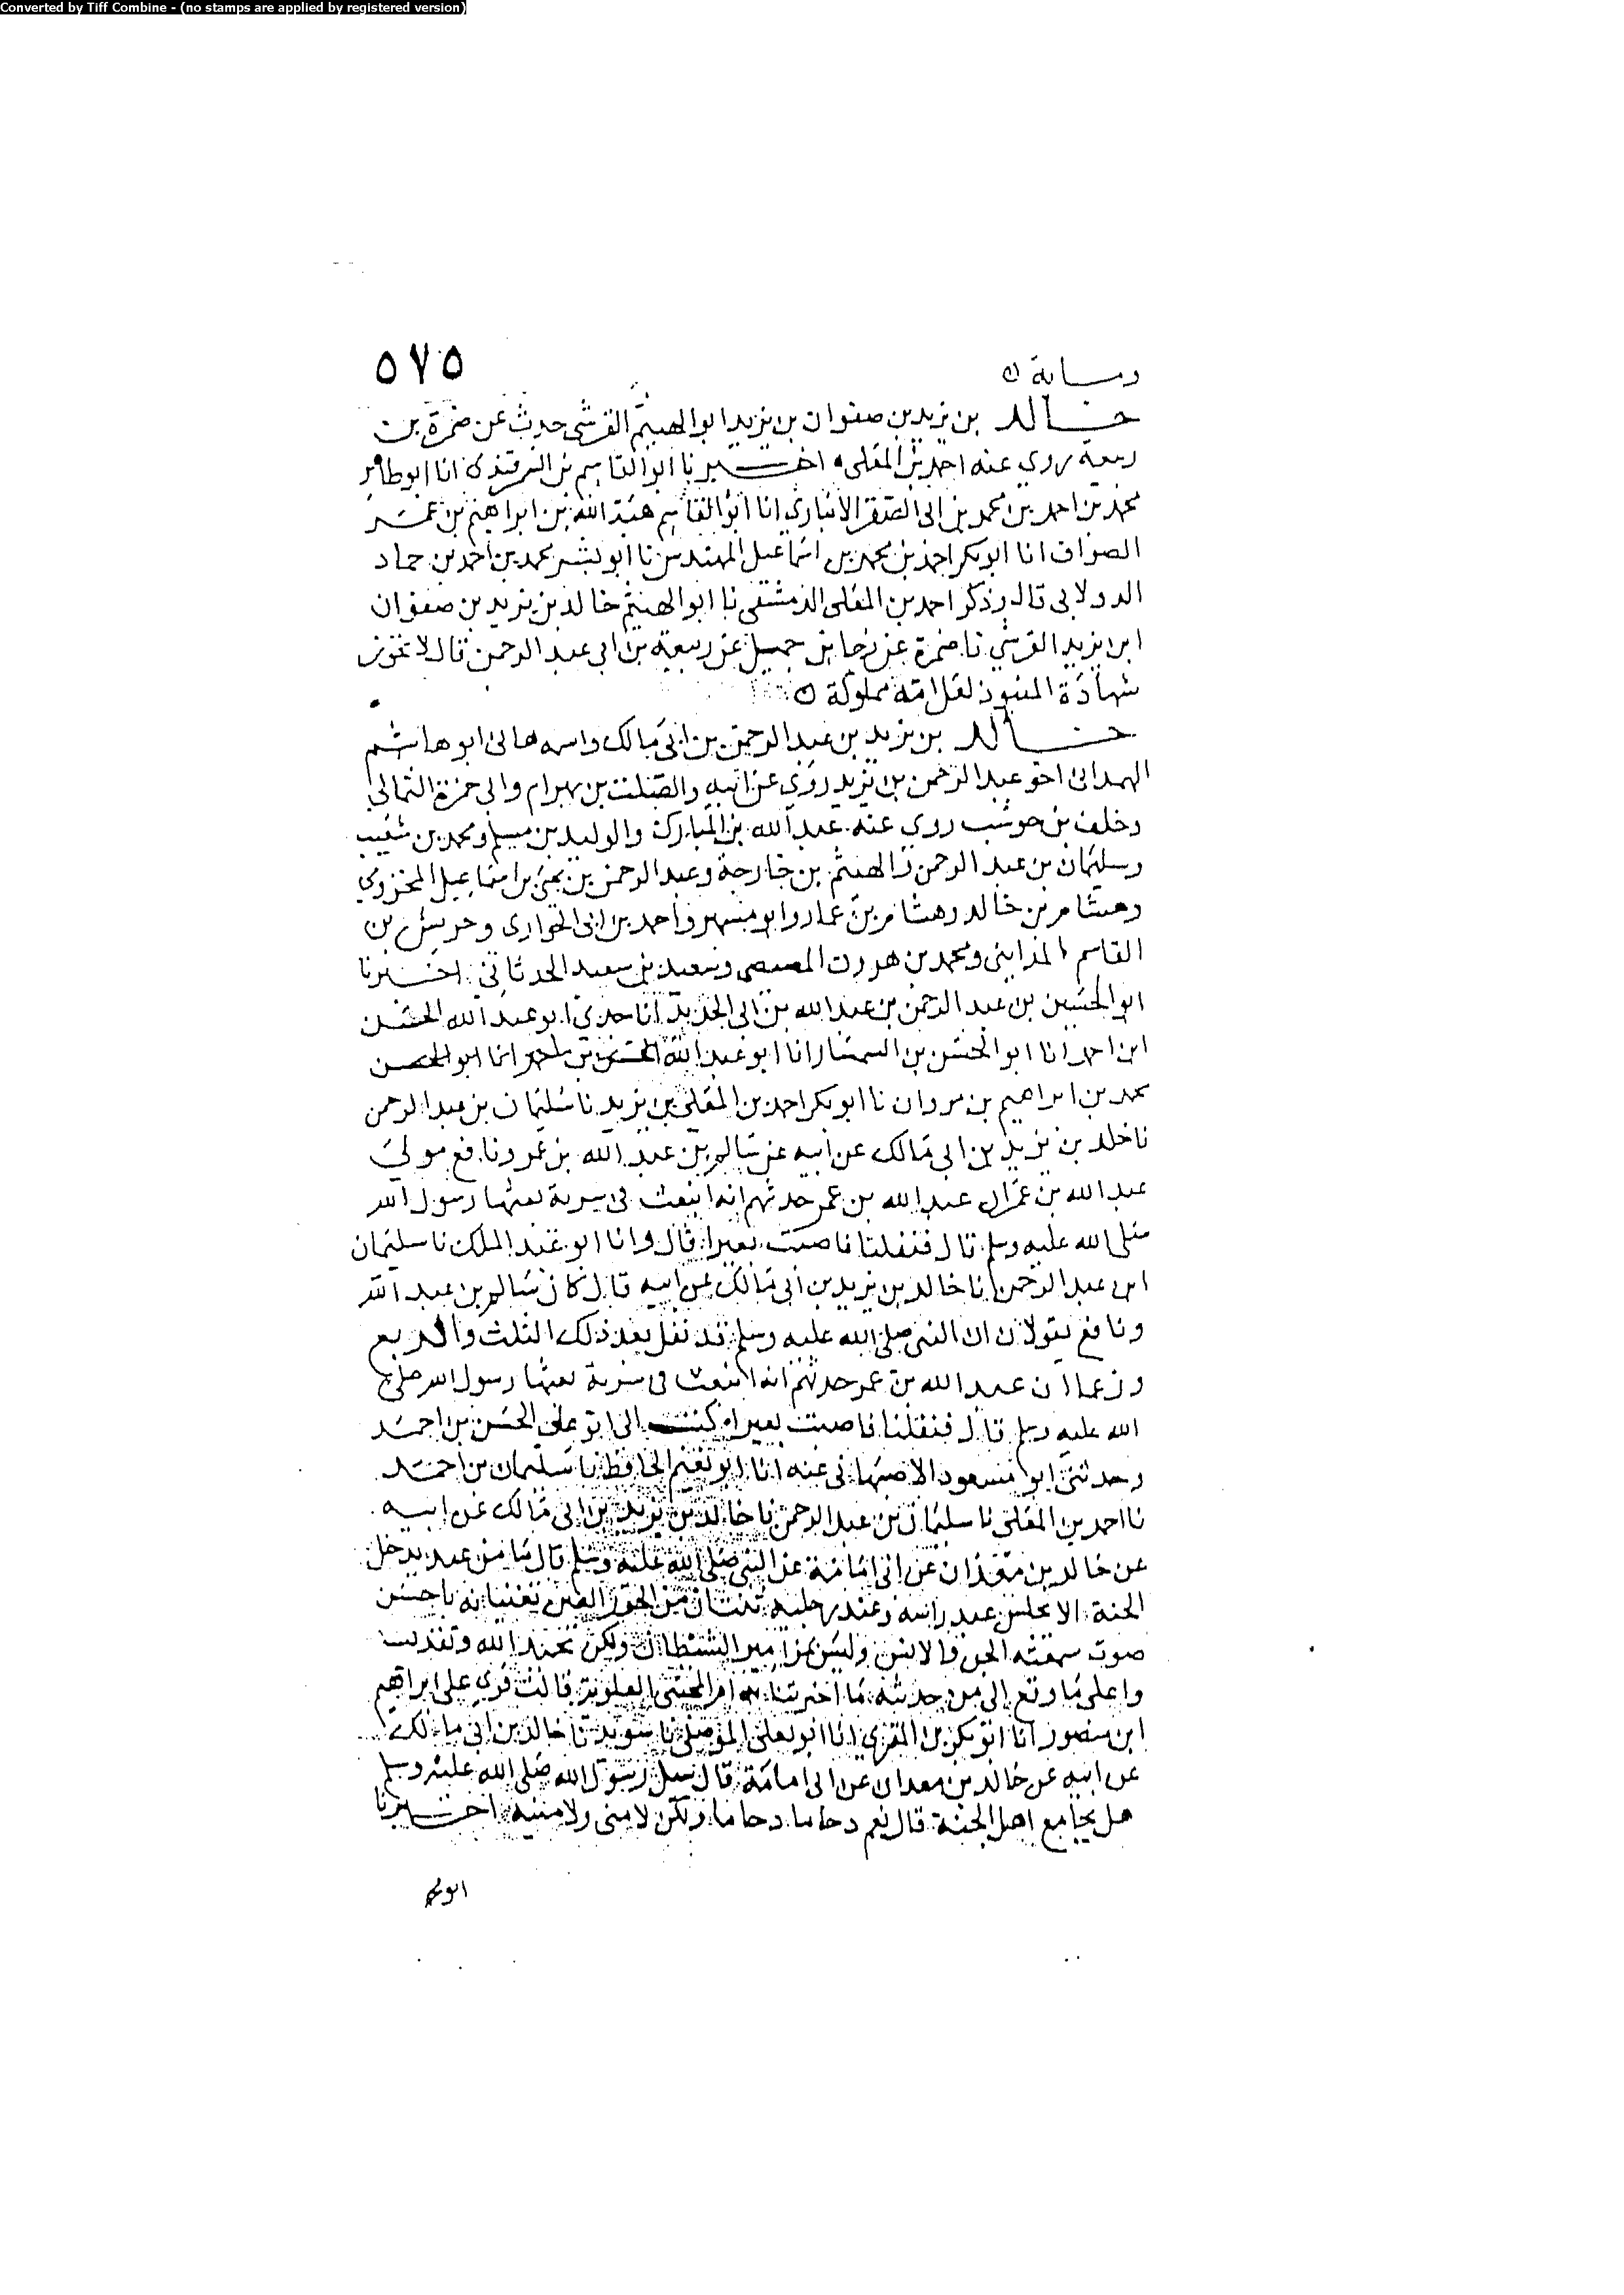 Converted by Tiff Combine - (no stamps are applied by registered version)
٥٧٥
ومــاية ٥
خــالد بن يزيد بن صفوان بن يزيد ابو الهيثم القرشي حدث عن ضمرة بن
ربيعة روي عنه احمد بن المعلى اخــبرنا ابو القاسم بن السمرقندي انا ابو طاهر
محمد بن احمد بن محمد بن ابي الصقر الانباري انا ابو القاسم هبة الله بن ابراهيم بن عمــر
الصواف انا ابو بكر احمد بن محمد بن اسماعيل المهندس نا ابو بشر محمد بن احمد بن حماد
الدولابي قال وذكر احمد بن المعلى الدمشقي نا ابو الهيثم خالد بن يزيد بن صفوان
ابن يزيد القرشي نا ضمرة عن رجا بن جميل عن ربيعة بن ابي عبد الرحمن قال لا تجوز
شهادة المنبوذ لعل امه مملوكة ٥
خــالد بن يزيد بن عبد الرحمن بن ابي مالك واسمه هاني ابو هاشم
الهمداني اخو عبد الرحمن بن يزيد روي عن ابيه والصلت بن بهرام وابي حمزة الثمالي
وخلف بن حوشب روي عنه عبد الله بن المبارك والوليد بن مسلم ومحمد بن شعيب
وسليمان بن عبد الرحمن والهيثم بن خارجة وعبد الرحمن بن يحيى بن اسماعيل المخزومي
وهشام بن خالد وهشام بن عمار وابو مسهر واحمد بن ابي الحواري وحريش بن
القاسم المدايني ومحمد بن هرون المصيصي وسعيد بن سعيد الحدثاني اخــبرنا
ابو الحسين بن عبد الرحمن بن عبد الله بن ابي الحديد انا جدي ابو عبد الله الحســن
ابن احمد انا ابو الحسن بن السمسار انا ابو عبد الله الحسين بن احمد انا ابو الحسن
محمد بن ابراهيم بن مروان نا ابو بكر احمد بن المعلى بن يزيد نا سليمان بن عبد الرحمن
نا خلد بن يزيد بن ابي مالك عن ابيه عن سالم بن عبد الله بن عمر ونافع مولي
عبد الله بن عمر ان عبد الله بن عمر حدثهم انه ابتعث في سرية بعثها رسول الله
صلى الله عليه وسلم قال فنفلنا فاصبت بعيرا قال وانا ابو عبد الملك نا سليمان
ابن عبد الرحمن نا خالد بن يزيد بن ابي مالك عن ابيه قال كان سالم بن عبد الله
ونافع يقولان ان النبي صلى الله عليه وسلم قد نفل بعد ذلك الثلث والربع
وزعما ان عبد الله بن عمر حدثهم انه ابتعث في سرية بعثها رسول الله صلى
الله عليه وسلم قال فنفلنا فاصبت بعيرا كتــب الي ابو علي الحسن بن احمــد
وحدثني ابو مسعود الاصبهاني عنه انا ابو نعيم الحافظ نا سليمان بن احمــد
نا احمد بن المعلى نا سليمان بن عبد الرحمن نا خالد بن يزيد بن ابي مالك عن ابيــه
عن خالد بن معدان عن ابي امامة عن النبي صلى الله عليه وسلم قال ما من عبد يدخل
الجنة الا يجلس عند راسه وعند رجليه ثنتان من الحور العين تغنيانه باحسن
صوت سمعته الجن والانس وليس بمزامير الشيطان ولكن بحمد الله وتقديسه
واعلى ما وقع الي من حديثه ما اخبرتنا به ام المجتبى العلوية قالت قري على ابراهيم
ابن منصور انا ابو بكر بن المقري انا ابو يعلى الموصلي نا سويد نا خالد بن ابي مالك
عن ابيه عن خالد بن معدان عن ابي امامة قال سيل رسول الله صلى الله عليه وسلم
هل يجامع اهل الجنة قال نعم دحاما دحاما ولكن لا مني ولا منية اخــبرنا
ابو محمد